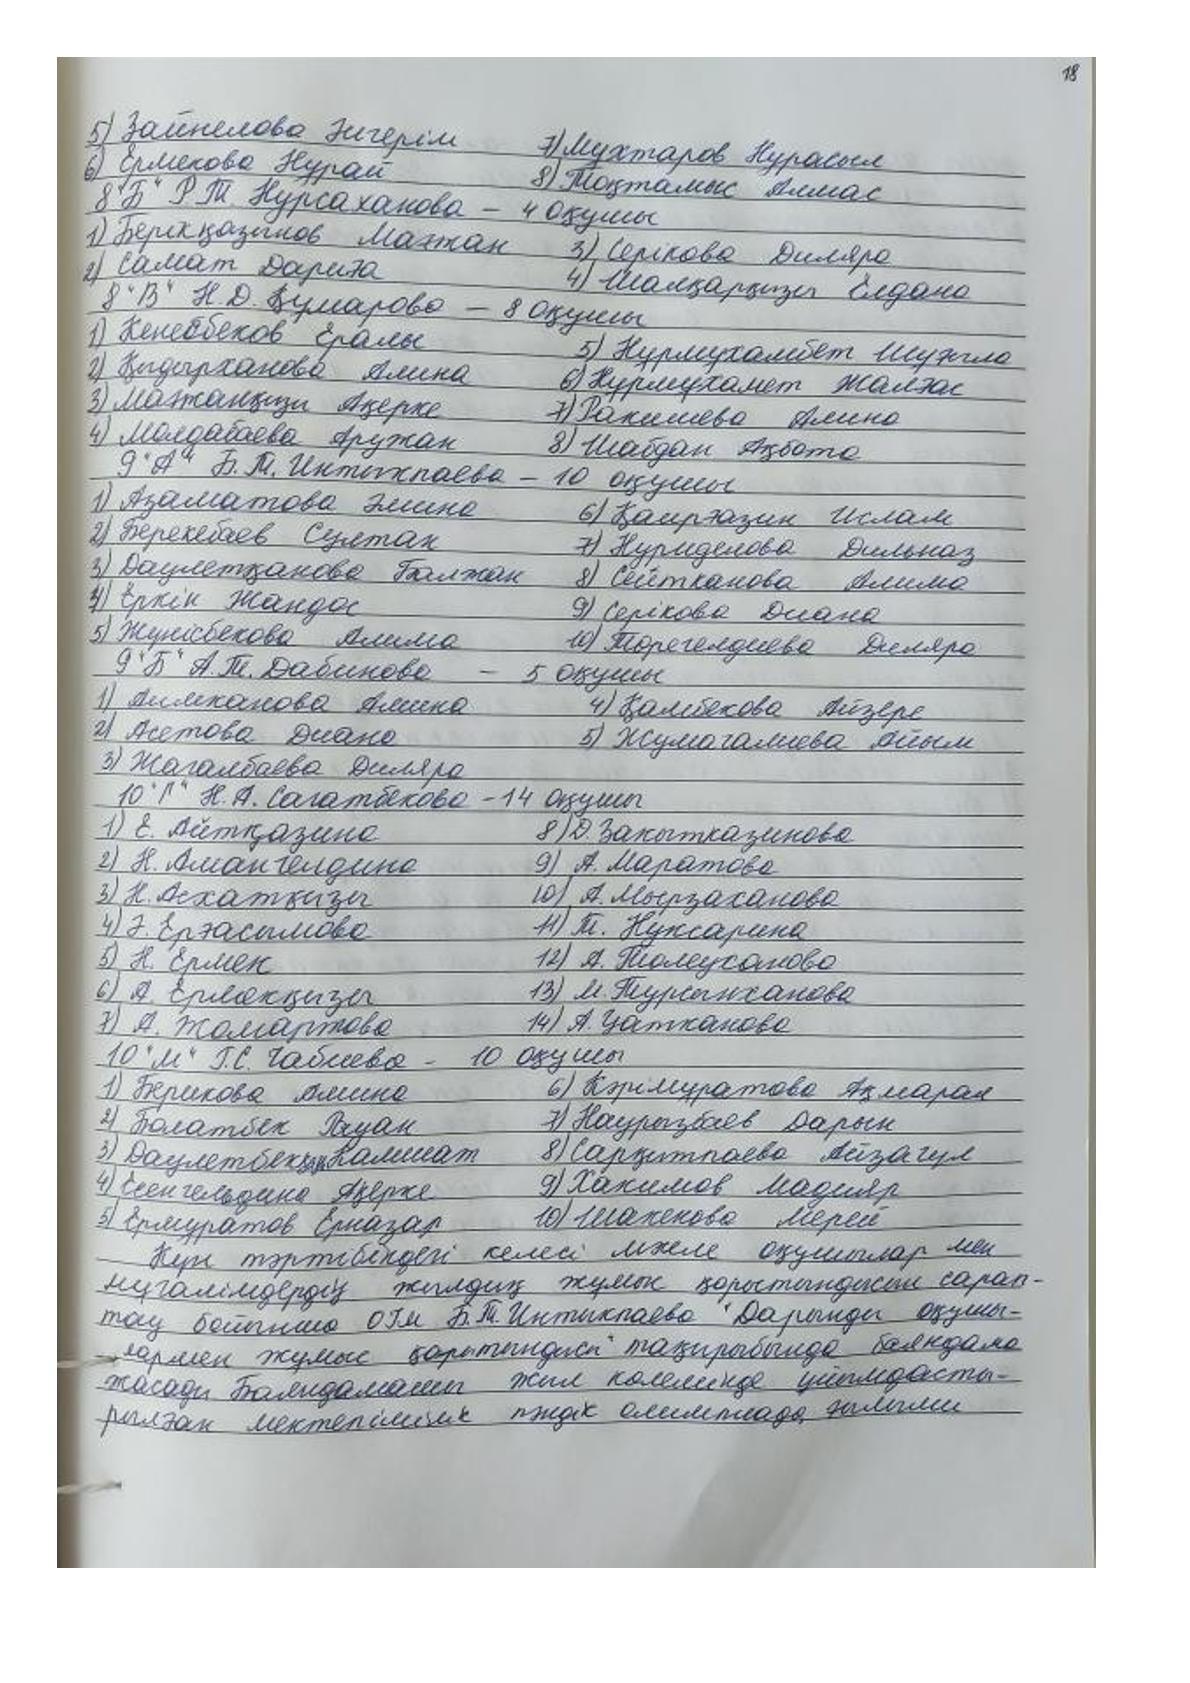 18
5) Зайнелова Әнгерім 7) Мухтаров Нурасыл
6) Ермекова Нурай 8) Тоқтамыс Алмас
8 "Б" Р.Т. Нурсаханова – 4 оқушы
1) Берікқазынов Мағжан 3) Серікова Диляра
2) Самат Дариға 4) Шалқарқызы Елдана
8 "В" Н.Д. Қумарова – 8 оқушы
1) Кенебеков Ералы 5) Нурмухамбет Шуғыла
2) Қыдырханова Амина 6) Нурмухамет Жалғас
3) Мағжанқызы Ақерке 7) Ракишева Амина
4) Молдабаева Аружан 8) Шабдан Ақбота
9 "А" Б.Т. Интыкпаева – 10 оқушы
1) Азаматова Әмина 6) Қаиргазин Ислам
2) Берекебаев Султан 7) Нуриделова Дильназ
3) Даулетқанова Балжан 8) Сейтканова Алима
4) Еркін Жандос 9) Серікова Диана
5) Жунісбекова Алима 10) Торегелдиева Диляра
9 "Б" А.Т. Дабинова – 5 оқушы
1) Алимканова Амина 4) Қамбекова Айзере
2) Асетова Диана 5) Жумагалиева Айым
3) Жагалбаева Диляра
10 "Л" Н.А. Сагатбекова – 14 оқушы
1) Е. Айтқазина 8) Д. Закытказинова
2) Н. Амангелдина 9) А. Маратова
3) Н. Асхатқызы 10) А. Мырзаханова
4) Ә. Ерғасымова 11) Т. Нуксарина
5) Н. Ермек 12) А. Толеуханова
6) А. Ермекқызы 13) М. Турсынханова
7) А. Жомартова 14) А. Уатканова
10 "М" Г.С. Чабиева – 10 оқушы
1) Берикова Амина 6) Кәрімуратова Ақмарал
2) Болатбек Рауан 7) Наурызбаев Дарын
3) Даулетбекқызы Камшат 8) Сарқытпаева Айзагул
4) Есенгельдина Ақерке 9) Хакимов Мадияр
5) Ермуратов Ерназар 10) Шакенова Мерей
Күн тәртібіндегі келесі мәселе оқушылар мен
мұғалімдердің жылдық жұмыс қорытындысын сарап-
тау бойынша ОІМ Б.Т. Интыкпаева "Дарынды оқушы-
лармен жұмыс қорытындысы" тақырыбында баяндама
жасады Баяндамашы жыл көлемінде ұйымдасты-
рылған мектепішілік пәндік олимпиада, ғылыми